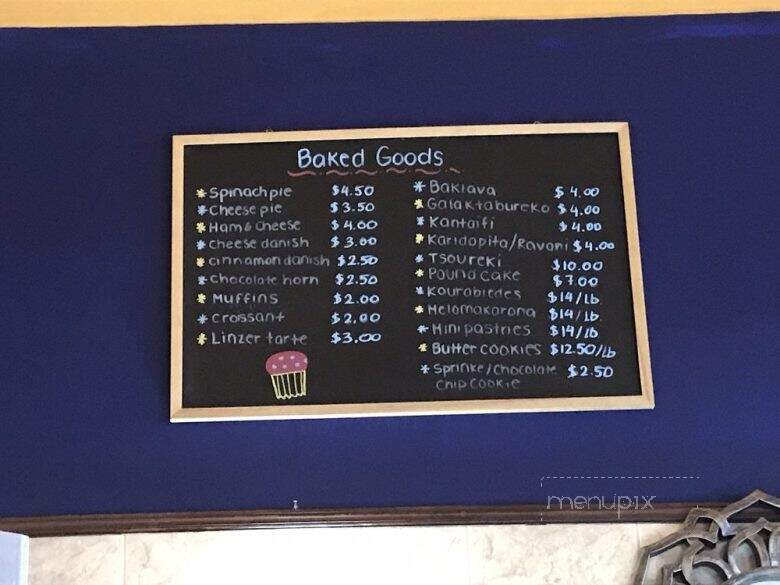 Baked Goods
Spinach pie $4.50
Cheese pie $3.50
Ham & Cheese $4.00
Cheese danish $3.00
cinnamon danish $2.50
Chocolate horn $2.50
Muffins $2.00
croissant $2.00
Linzer tarte $3.00
Baklava $4.00
Galaktabureko $4.00
Kantaifi $4.00
Karidopita/Ravani $4.00
Tsoureki $10.00
Pound cake $7.00
Kourabiedes $14/lb
Melomakarona $14/lb
Mini pastries $14/lb
Butter cookies $12.50/lb
Sprinke/Chocolate $2.50
chip cookie
menupix